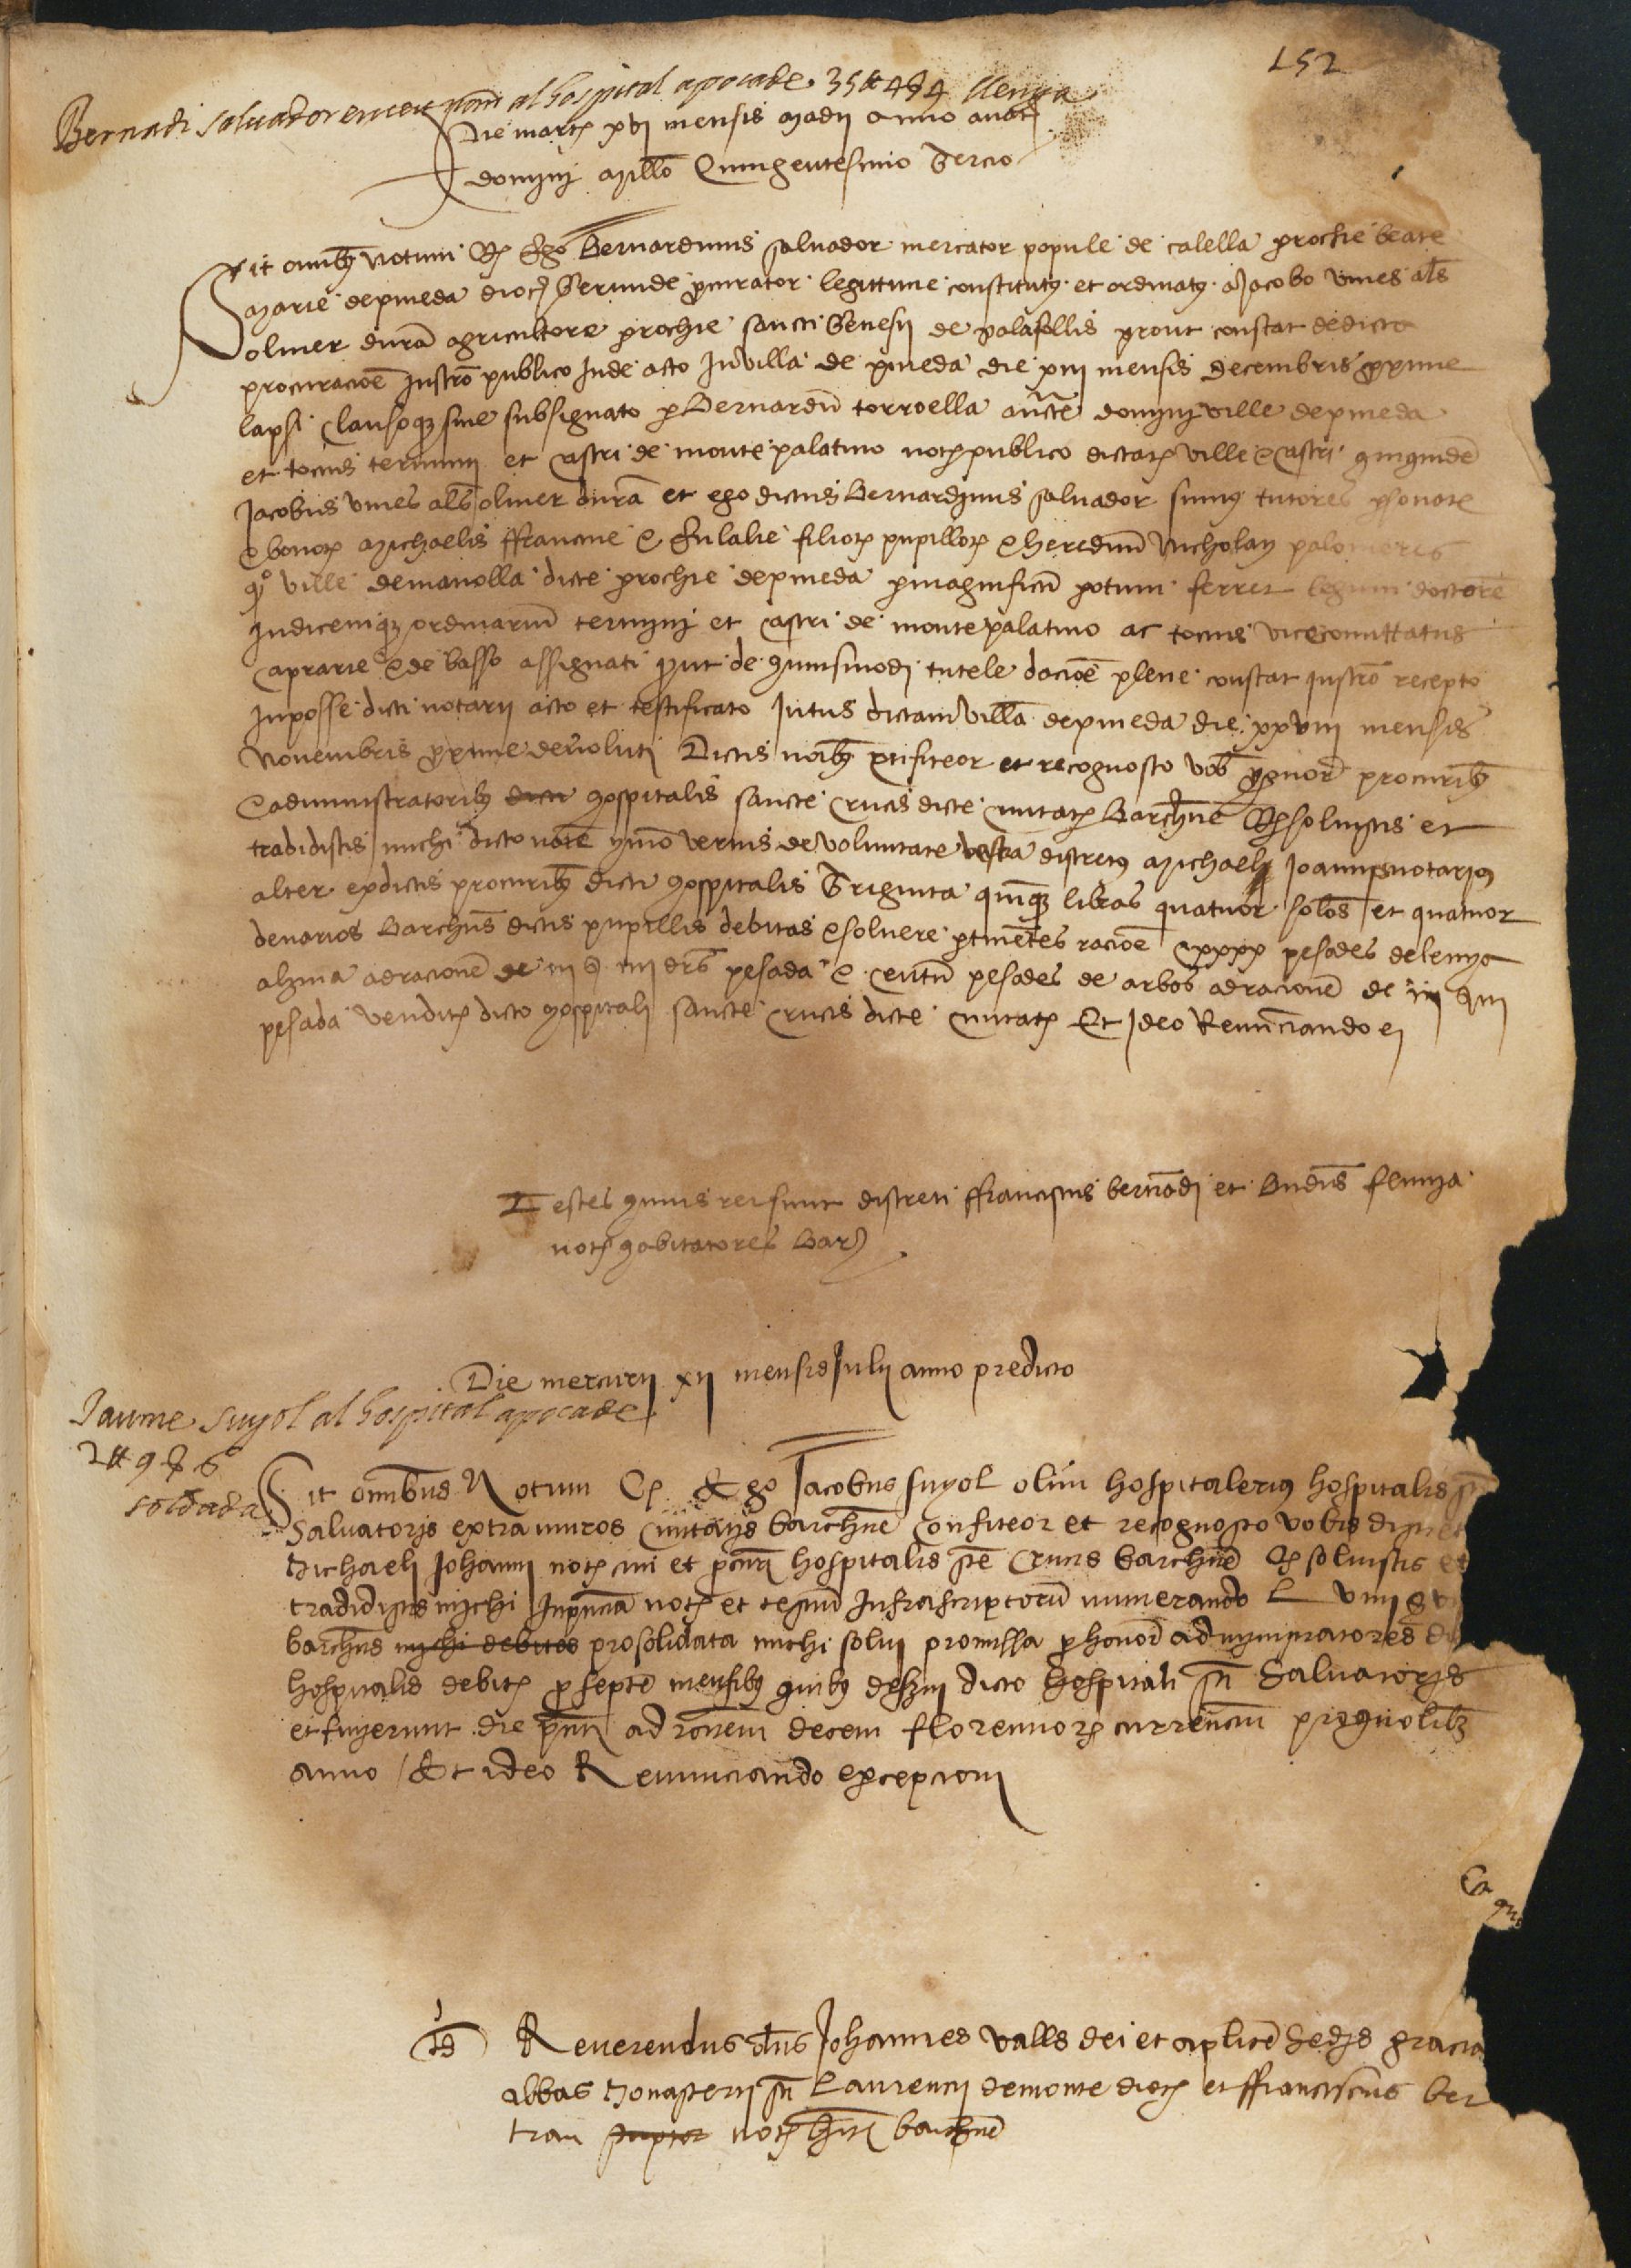 152
Bernadi saluador en cert nom al hospital apoca de 35 ll 4 s 4 llenya
Die martꝭ xvj mensis madij anno a natte
domynj millo quingentesimo tercio
Sit omnibꝫ notum qꝫ Ego Bernardinus saluador mercator popule de calella prochie beate
marie de pineda dioc Gerunde procurator legittime constitutꝰ et ordinatꝰ a Jacobo viues als
oliuer duran agricultore prochie sancti Genesij de palafollis prout constat de dicta
procuracioe Instro publico Inde acto In villa de pineda die xiij mensis decembris proxime
lapsi clausoqꝫ siue subsignato per Bernardu torroella aucte dominj ville de pineda
et tocius terminj et castri de monte palatino notꝭ publico dictarꝝ ville et castri quiquide
Jacobus viues als oliuer duran et ego dictus Bernardinus saluador sumꝰ tutores personarꝝ
et bonorꝝ michaelis ffrancine et Eulalie filiorꝝ pupillorꝝ et heredum Nicholay palomeres
qo ville de manolla dicte prochie de pineda per magnificu potum ferrer legum doctore
Judicemqꝫ ordinarium terminj et castri de monte palatino ac tocius vicecomittatus
caprarie et de basso assignati prout de huiusmodi tutele dacioe plene constat instro recepto
In posse dicti notarij acto et testificato Intus dictam villa de pineda die xxviij mensis
Nouembris proxime deuoluti Dictis noibꝫ confiteor et recognosco vob honor procuribꝫ
et administratoribꝫ dicti hospitalis sancte crucis dicte ciuitatꝭ Barchne qꝫ soluistis et
tradidistis michi dicto noie ymo verius de voluntate vestra discretꝰ michaelis Joannis notariꝰ
alter ex dictis procuribꝫ dicti hospitalis Triginta quinqꝫ libras quatuor solos et quatuor
denarios Barchns dictis pupillis debitas et soluere ptinentes racioe cxxxx pesades de lenya
alzina a dracione de iij s iiij drs pesada et centu pesades de arbos adracione de ij s iij
pesada venditꝭ dicto hospitali sancte crucis dicte ciuitatꝭ Et Ideo Renunciando ej
Testes huius rei sunt discreti ffranciscus bernadi et Andreas
notꝭ habitatores Bar
Die mercurij xij mensis Julij anno predicto
Jaume suyol al hospital apoca de
2 ll 9 s 6
soldada
Sit omnibus Notum qꝫ Ego Jacobus suyol olim hospitaleriꝰ hospitalis sti
Saluatoris extra muros ciuitatis barchne Confiteor et recognosco vobis discret
Michaeli Johanni notꝭ ciui et pcuri hospitalis ste Crucis barchne qꝫ soluistis et
tradidistis michi In pncia notꝭ et testium Infrascriptorum numerando L viiij s vi
barchns michi debitos pro solidata michi solui promissa per honor administratores dicti
hospitalis debitꝭ pro septe mensibꝫ quibꝫ desuij dicto hospitali sti Saluatoris
et finierunt die pnti ad ronem decem florenorꝝ currencium pro quolibꝫ
anno / Et ideo Renunciando excepcioni
Ts Reuerendus dns Johannes valls dei et aplice Sedis gracia
abbas Monasterij sti Laurencij de monte diocꝭ et ffranciscus ber
tran scriptor notꝭ hitꝭ barchne